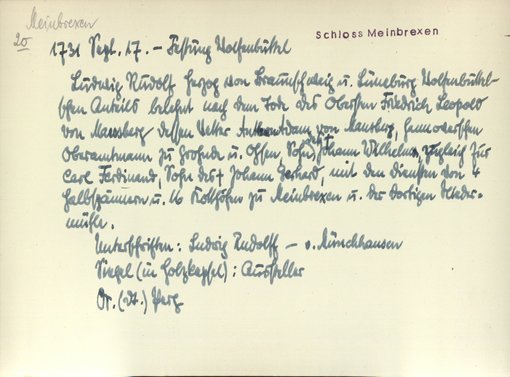 Meinbrexen
20
Schloss Meinbrexen
1731 Sept. 17. – Festung Wolfenbüttel
Ludwig Rudolf Herzog von Braunschweig u. Lüneburg Wolfenbüttel-
schen Anteils belehnt nach dem Tode des Obersten Friedrich Leopold
von Mansberg dessen Vetter von Mansberg, hannoverschen
Oberamtmann zu Grohnde u. Ohsen, Sohn des † Johann Wilhelm, zugleich für
Carl Ferdinand, Sohn des † Johann Gerhard, mit den Diensten von 4
Halbspännern u. 16 Kotthöfen zu Meinbrexen u. der dortigen
mühle.
Unterschriften: Ludwig Rudolff – v. Münchhausen
Siegel (in Holzkapsel): Aussteller
Or. (dt.) Perg